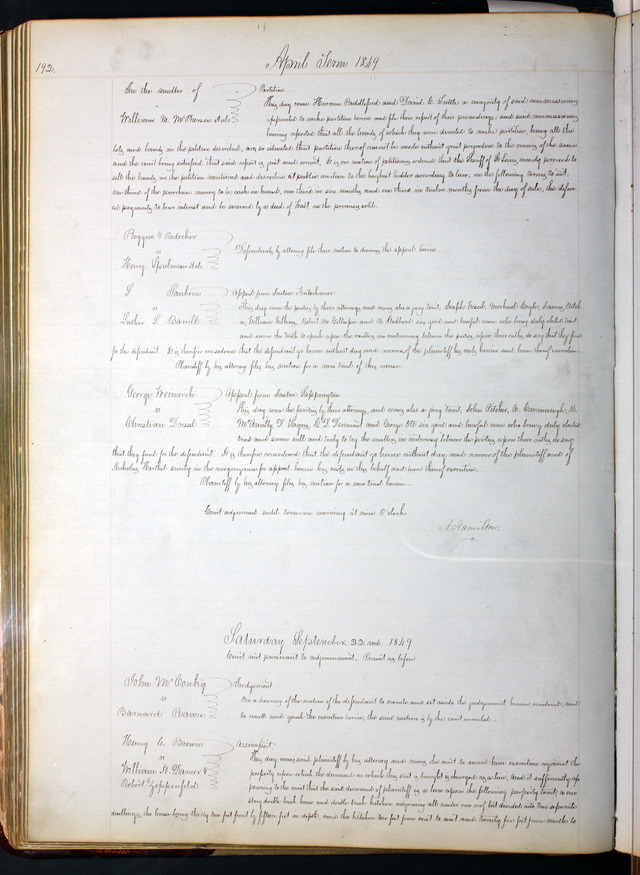 192.
April Term 1849.
In the matter of Partition
William M. McPherson et als
This day come Hiram Paddleford and David C. Tuttle a majority of said commissioners
appointed to make partition herein and file their report of their proceedings, and said commissioners
having reported that all the lands of which they were directed to make partition, being all the
lots and lands in the petition described, are so situated that partition thereof cannot be made without great prejudice to the owners of the same
and the court being satisfied that said report is just and correct. It is on motion of petitioners ordered that the Sheriff of St Louis county proceed to
sell the lands in the petition mentioned and described at public auction to the highest bidder according to law, on the following terms to wit.
one third of the purchase money to be cash in hand, one third in six months and one third in twelve months from the day of sale, the defer
ed payments to bear interest and be secured by a deed of Trust on the premises sold.
vs
Defendants by attorney file their motion to dismiss the appeal herein
Henry Spielman et als
Appeal from Justice
vs
This day come the parties by their attorneys, and comes also a jury to wit, Joseph
Luther
William Robert McGillespie and six good and lawful men who being duly elected tried
and sworn the truth to speak upon the matters in controversy between the parties, upon their oaths do say that they find
for the defendant. It is therefore considered that the defendant go hence without day and recover of the plaintiff his costs herein and have thereof execution.
Plaintiff by his attorney files his motion for a new trial of this cause.
George Appeal from Justice Sappington
vs
This day come the parties by their attorneys, and comes also a jury to wit, John Pitcher,
Christian
and George six good and lawful men who being duly elected
tried and sworn well and truly to try the matters in controversy between the parties upon their oaths do say
that they find for the defendant. It is therefore considered that the defendant go hence without day and recover of the plaintiff and of
Nicholas security in the recognizance for appeal herein his costs in this behalf and have thereof execution.
Plaintiff by his attorney files his motion for a new trial herein
Court adjourned until tomorrow morning at nine O'clock.
A. Hamilton.
Saturday September 22nd 1849
Court met pursuant to adjournment. Present as before
John McConky Judgement
vs
On a hearing of the motion of the defendant to vacate and set aside the judgement herein rendered, and
Barnard
to recall and quash the execution herein, the said motion is by the court overruled.
Henry C. Assumpsit
vs
This day comes said plaintiff by his attorney and moves the court to award him execution against the
William H.
property upon which the demand on which this suit is brought is charged as a lien, and it sufficiently ap
Robert
pearing to the court that the said demand of plaintiff is a lien upon the following property to wit; a one
story double brick house and double brick kitchen adjoining all under one roof but divided into two separate
dwellings, the house being thirty one feet front by fifteen feet in depth, and the kitchen feet from east to west and twenty five feet from north to